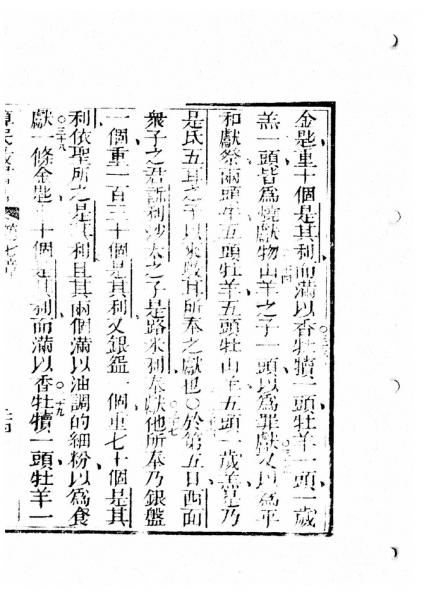 金匙重十個是其利而滿以香牡犢一頭牡羊一頭一歲
羔一頭皆為燒獻物山羊之子一頭以為罪獻又以為平
和獻祭兩頭牛五頭牡羊五頭牡山羊五頭一歲羔是乃
是氏五耳之子以來股其所奉之獻也○於第五日西面
衆子之君訴利沙太之子是路米利奉獻他所奉乃銀盤
一個重一百三十個是其利又銀鎰一個重七十個是其
利依聖所之是其利且其兩個滿以油調的細粉以為食
獻一條金匙十個是其利而滿以香牡犢一頭牡羊一